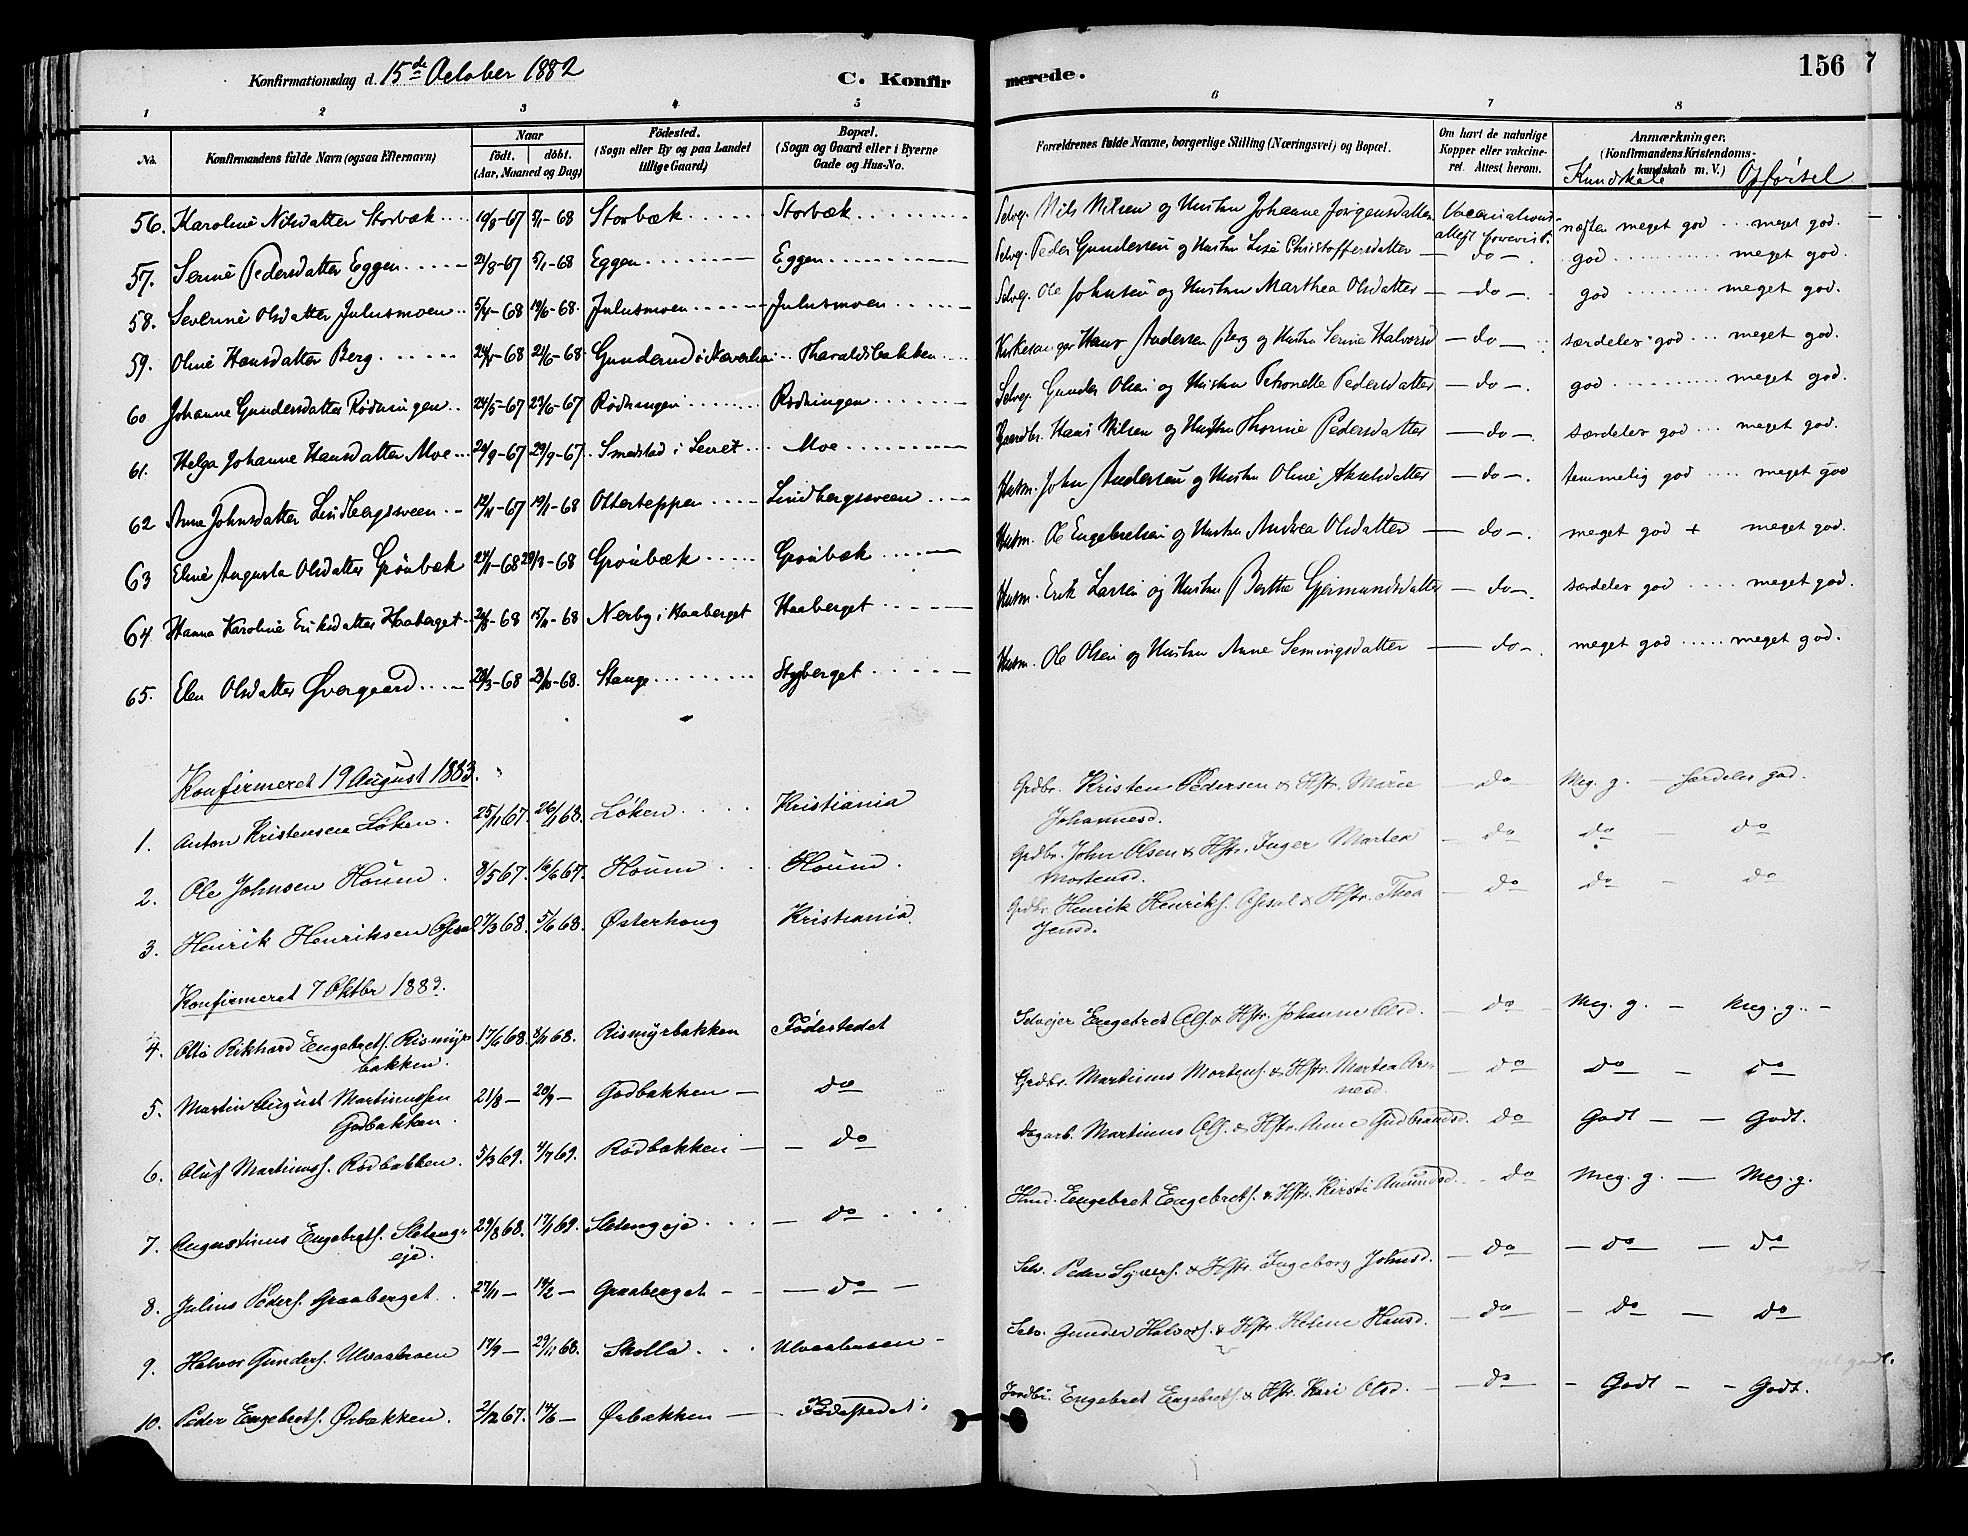 Konfirmationsdag d. 15de October 1882 C. Konfirmerede. 156 7
1 2 3 4 5 6 7 8
No. Konfirmandens fulde Navn (ogsaa Efternavn) Naar födt. döbt. (Aar, Maaned og Dag) Födested. (Sogn eller By og paa Landet tillige Gaard) Bopæl. (Sogn og Gaard eller i Byerne Gade og Hus-No. Forældrenes fulde Navne, borgerlige Stilling (Næringsvei) og Bopæl. Om havt de naturlige Kopper eller vakcineret. Attest herom. Anmærkninger. (Konfirmandens Kristendomskundskab m. V.) Kundskab Opførsel
56. Karoline Nilsdatter Storbæk 19/8-67 5/1-68 Storbæk Storbæk Selvg. Nils Nilsen og Hustru Johanne Jørgensdatter Vaccinationsattest forevist. næsten meget god meget god.
57. Serine Pedersdatter Eggen 21/8-67 5/1-68 Eggen Eggen Selvg. Peder Gundersen og Hustru Lise Christoffersdatter do god meget god.
58. Severine Olsdatter Julusmoen 5/4-68 19/6-68. Julusmoen Julusmoen Selvg. Ole Johnsen og Hustru Marthea Olsdatter do god meget god.
59. Oline Hansdatter Berg 24/5-68 21/6-68 Gunderud i Thoraldsbakken Kirkesanger Hans Andersen Berg og Hustru Serine Halvorsd do særdeles god meget god.
60 Johanne Gundersdatter Rødningen 24/5-67 23/6-67 Rødningen Rødningen Selvg. Gunder Olsen og Hustru Petronelle Pedersdatter do god meget god.
61. Helga Johanne Hansdatter Moe 24/9-67 29/9-67 Smedstad i Moe Gaardbr. Hans Nilsen og Hustru Thorine Pedersdatter do særdeles god meget god.
62 Anne Johnsdatter Lindbergsveen 12/11-67 19/1-68 Otterteppen Lindbergsveen Husm. John Andersen og Hustru Oline Akselsdatter do temmelig god meget god
63 Eline Augusta Olsdatter Grønbæk 24/1-68 29/3-68 Grønbæk Grønbæk Husm. Ole Engebretsen og Hustru Andrea Olsdatter do meget god + meget god.
64 Hanna Karoline Eriksdatter Haaberget -68 15/11-68 Nerby i Haaberget Haaberget Husm. Erik Larsen og Hustru Berthe Gjermundsdatter do særdeles god meget god.
65. Elen Olsdatter Øvergaard 28/3-68 -68. Stange Stybberget Husm. Ole Olsen og Hustru Anne Semingsdatter do meget god meget god.
Konfirmeret 19 August 1883.
1. Anton Kristensen Løken 25/11 67. 26/1 68. Løken Kristiania Grdbr. Kristen Pedersen & Hstr. Marie Johannesd. do Meg. g. særdeles god.
2. Ole Johnsen Houm 8/5 67. 16/6 67. Houm Houm. Grdbr. John Olsen & Hstr. Inger Martea Mortensd. do do do
3. Henrik Henriksen 7/3 68. 5/6 68. Østerhaug Kristiania Grdbr. Henrik Henriks. & Hstr. Thea Jensd. do do do
Konfirmeret 7 Oktbr 1883.
4. Otto Rikhard Engebrets. Rismyrbakken. 17/6 68. 8/11 68. Rismyrbakken Fødestedet Selvejer Engebret Ols. & Hstr. Johanne Olsd. do Meg. g. Meg. g.
5. Martin August Martinussen Godbakken. 21/8 20/9 Godbakken do Grdbr. Martinus Mortens. & Hstr. Martea Arnesd. do do do
6. Oluf Martinuss. Rødbakken. 5/3 69. 4/7 69. Rødbakken do Dagarb. Martinus Ols. & Hstr. Anne Gudbrandsd. do Godt Godt.
7. Augustinus Engebrets. Sletengeje. 29/8 68. 17/1 69. Sletengeje do Husm. Engebret Engebrets. & Hstr. Kirsti Amundsd. do Meg. g. Meg. g.
8. Julius Peders. Graaberget 27/11 14/2 Graaberget do Selv. Peder Syvers. & Hstr. Ingeborg Johnsd. do do do
9. Halvor Gunders. Ulvaabroen 17/9 29/11 68. Skolla Selv. Gunder Halvors. & Hstr. Helene Hansd. do do do
10. Peder Engebrets. Øxbakken. 2/12 67. 14/6 Øxbakken Fødestedet Jordbr. Engebret Engebrets. & Hstr. Kari Olsd. do Godt Godt.